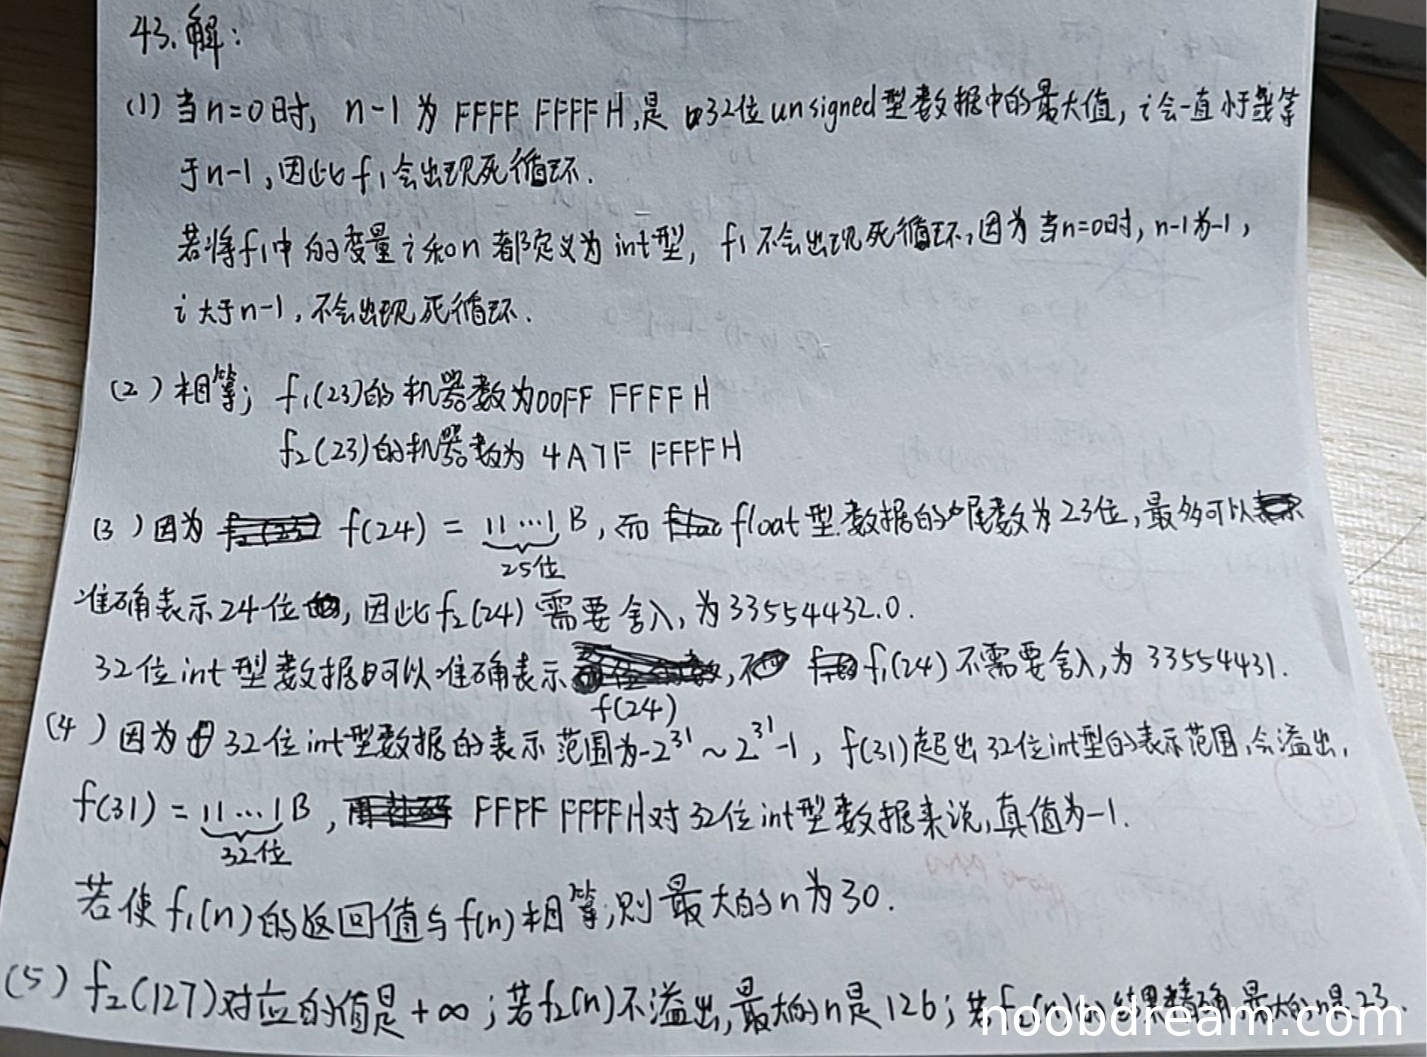 43.解:
(1)当n=0时, n-1为 FFFF FFFFH,是32位unsigned型数据中的最大值,i会一直小于或等
于n-1,因此f1会出现死循环.
若将f1中的变量i和n都定义为int型, f1不会出现死循环,因为当n=0时,n-1为-1,
i大于n-1,不会出现死循环.
(2)相等; f1(23)的机器数为00FF FFFFH
f2(23)的机器数为 4A7F FFFFH
(3)因为 f(24) = 11…1B,而 float型数据的尾数为23位,最多可以
25位
准确表示24位,因此f2(24)需要舍入,为33554432.0.
32位int型数据可以准确表示f(24),f1(24)不需要舍入,为33554431.
(4)因为32位int型数据的表示范围为-2^31~2^31-1, f(31)超出32位int型的表示范围,会溢出,
f(31) = 11…1B, FFFF FFFFH对32位int型数据来说,真值为-1.
32位
若使f1(n)的返回值与f(n)相等,则最大的n为30.
(5) f2(127)对应的值是+∞;若f2(n)不溢出,最大的n是126;若f2(n)的结果精确,最大的n是23.
noobdream.com